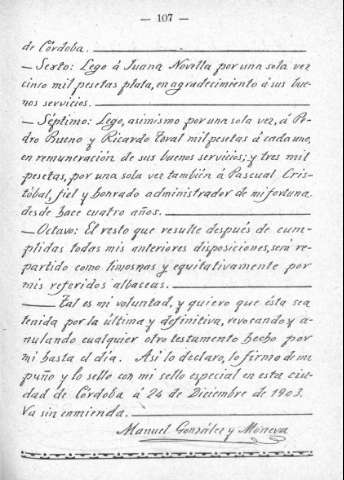 — 107 —
de Córdoba.
— Sexto: Lego á Juana Novella por una sola vez
cinco mil pesetas plata, en agradecimiento á sus bue-
nos servicios.
— Séptimo: Lego, asimismo por una sola vez, á Pe-
dro Bueno y Ricardo Toval mil pesetas á cada uno,
en remuneración de sus buenos servicios; y tres mil
pesetas, por una sola vez también á Pascual Cris-
tóbal, fiel y honrado administrador de mi fortuna
desde hace cuatro años.
— Octavo: El resto que resulte después de cum-
plidas todas mis anteriores disposiciones, será re-
partido como limosnas y equitativamente por
mis referidos albaceas.
— Tal es mi voluntad, y quiero que ésta sea
tenida por la última y definitiva, revocando y a-
nulando cualquier otro testamento hecho por
mi hasta el dia. Asi lo declaro, lo firmo de mi
puño y lo sello con mi sello especial en esta ciu-
dad de Córdoba á 24 de Diciembre de 1903.
Va sin enmienda.
Manuel González y Moncva